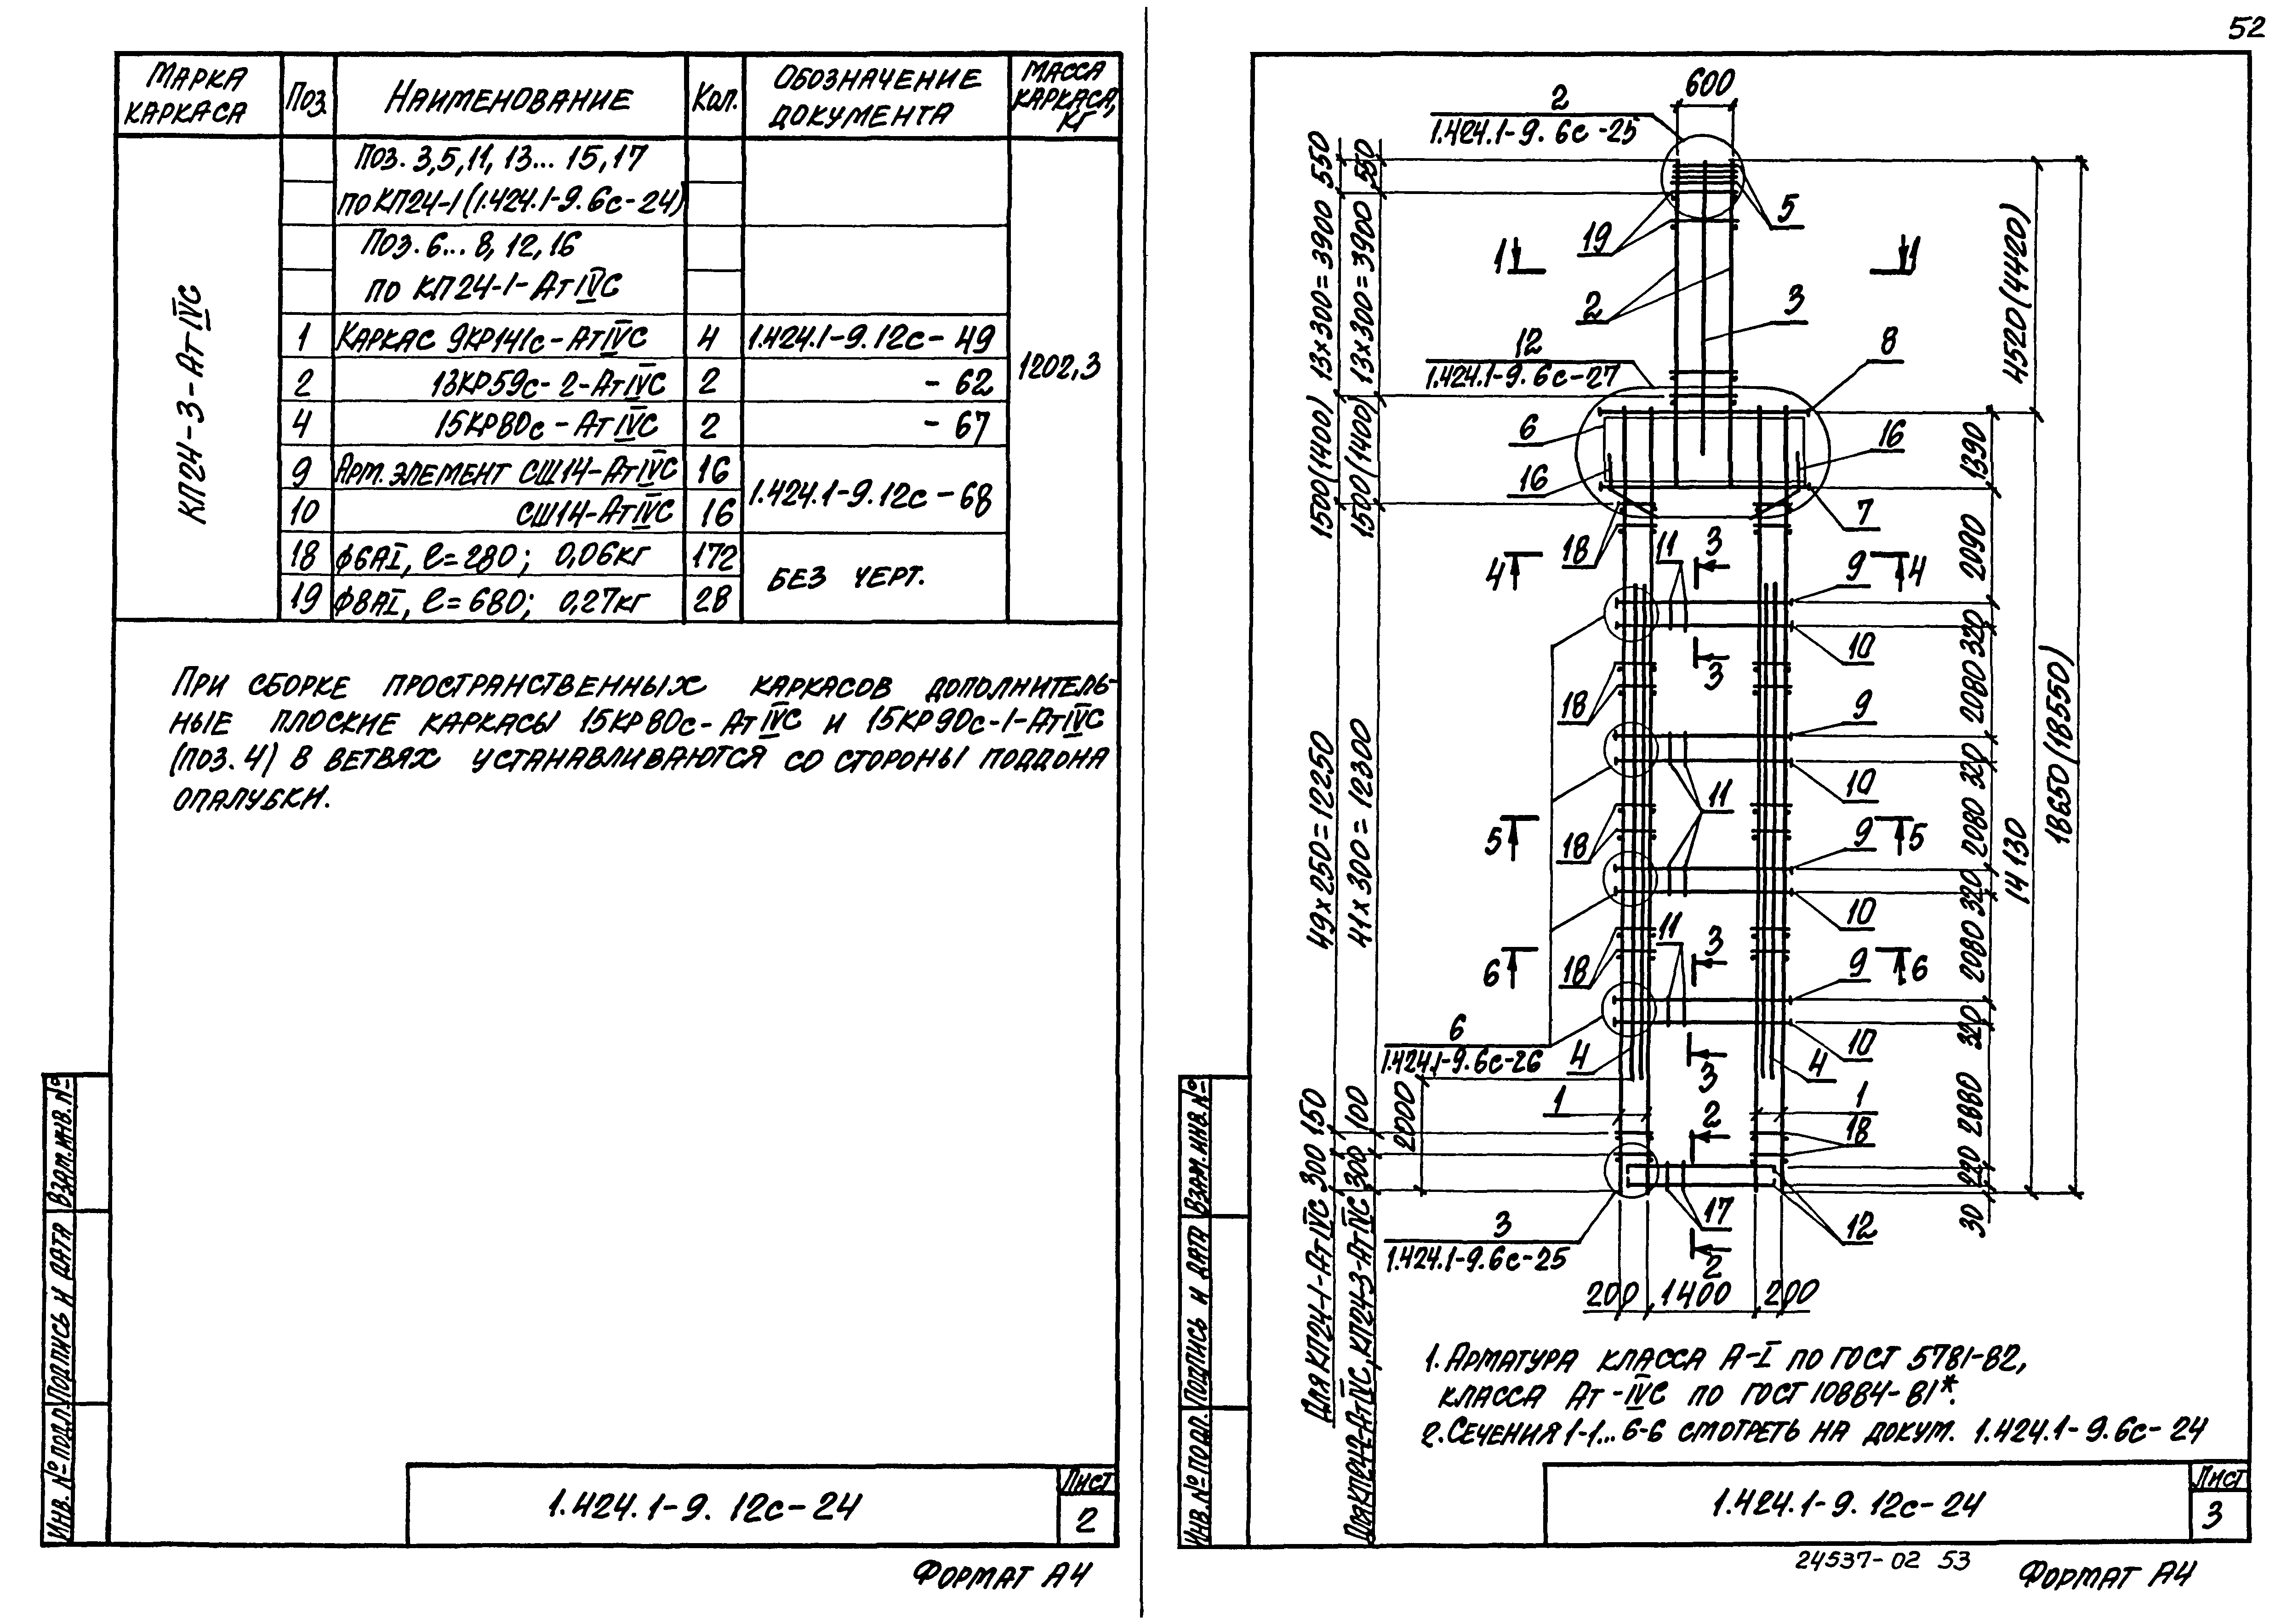 52
МАРКА КАРКАСА
ПОЗ.
НАИМЕНОВАНИЕ
КОЛ.
ОБОЗНАЧЕНИЕ ДОКУМЕНТА
МАССА КАРКАСА, КГ
КП24-3-АтIVС
ПОЗ. 3,5,11, 13... 15,17
ПО КП24-1 (1.424.1-9.6с-24)
ПОЗ. 6... 8, 12, 16
ПО КП24-1-АтIVС
1 КАРКАС 9КР141с-АтIVС 4 1.424.1-9.12с-49
1202,3
2 13КР59с-2-АтIVС 2 -62
4 15КР80с-АтIVС 2 -67
9 АРТ. ЭЛЕМЕНТ СШ14-АтIVС 16
1.424.1-9.12с-68
10 СШ14-АтIVС 16
18 ф6АI, ℓ=280; 0,06кг 172
БЕЗ ЧЕРТ.
19 ф8АI, ℓ=680; 0,27кг 28
ПРИ СБОРКЕ ПРОСТРАНСТВЕННЫХ КАРКАСОВ ДОПОЛНИТЕЛЬ-
НЫЕ ПЛОСКИЕ КАРКАСЫ 15КР80с-АтIVС И 15КР90с-1-АтIVС
(ПОЗ. 4) В ВЕТВЯХ УСТАНАВЛИВАЮТСЯ СО СТОРОНЫ ПОДДОНА
ОПАЛУБКИ.
ИНВ. № ПОДЛ.
ПОДПИСЬ И ДАТА
ВЗАМ. ИНВ. №
1.424.1-9. 12с-24
ЛИСТ
2
ФОРМАТ А4
2
1.424.1-9. 6с-25
600
5
19
1
1
2
3
12
1.424.1-9. 6с-27
8
6
16
16
7
18
11
3
4
4
9
10
3
18
9
10
11
18
5
5
9
10
11
3
18
6
6
9
10
6
1.424.1-9.6с-26
4
3
4
1
1
2
18
17
12
3
1.424.1-9.6с-25
2
200
1400
200
550
13×300=3900
1500(1400)
49×250=12250
150
300
Для КП24-1-АтIVС
550
13×300=3900
1500(1400)
41×300=12300
100
300
Для КП24-2-АтIVС, КП24-3-АтIVС
2000
1390
2090
320
2080
320
2080
320
2080
320
2880
220
30
4520(4420)
14130
18650(18550)
1. АРМАТУРА КЛАССА А-I ПО ГОСТ 5781-82,
КЛАССА Ат-IVС ПО ГОСТ 10884-81*.
2. СЕЧЕНИЯ 1-1... 6-6 СМОТРЕТЬ НА ДОКУМ. 1.424.1-9.6с-24
ИНВ. № ПОДЛ.
ПОДПИСЬ И ДАТА
ВЗАМ. ИНВ. №
1.424.1-9. 12с-24
ЛИСТ
3
24537-02 53
ФОРМАТ А4